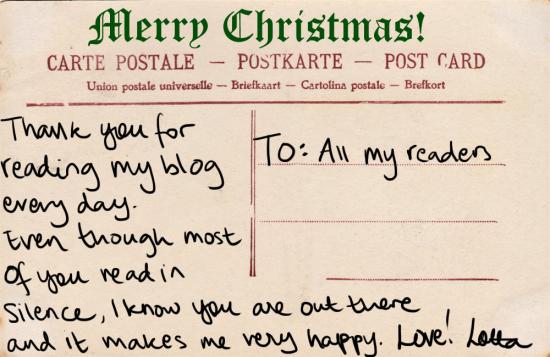 Merry Christmas!
CARTE POSTALE — POSTKARTE — POST CARD
Union postale universelle — Briefkaart — Cartolina postale — Brefkort
Thank you for
reading my blog
every day.
Even though most
of you read in
silence, I know you are out there
and it makes me very happy. Love! Lotta
To: All my readers